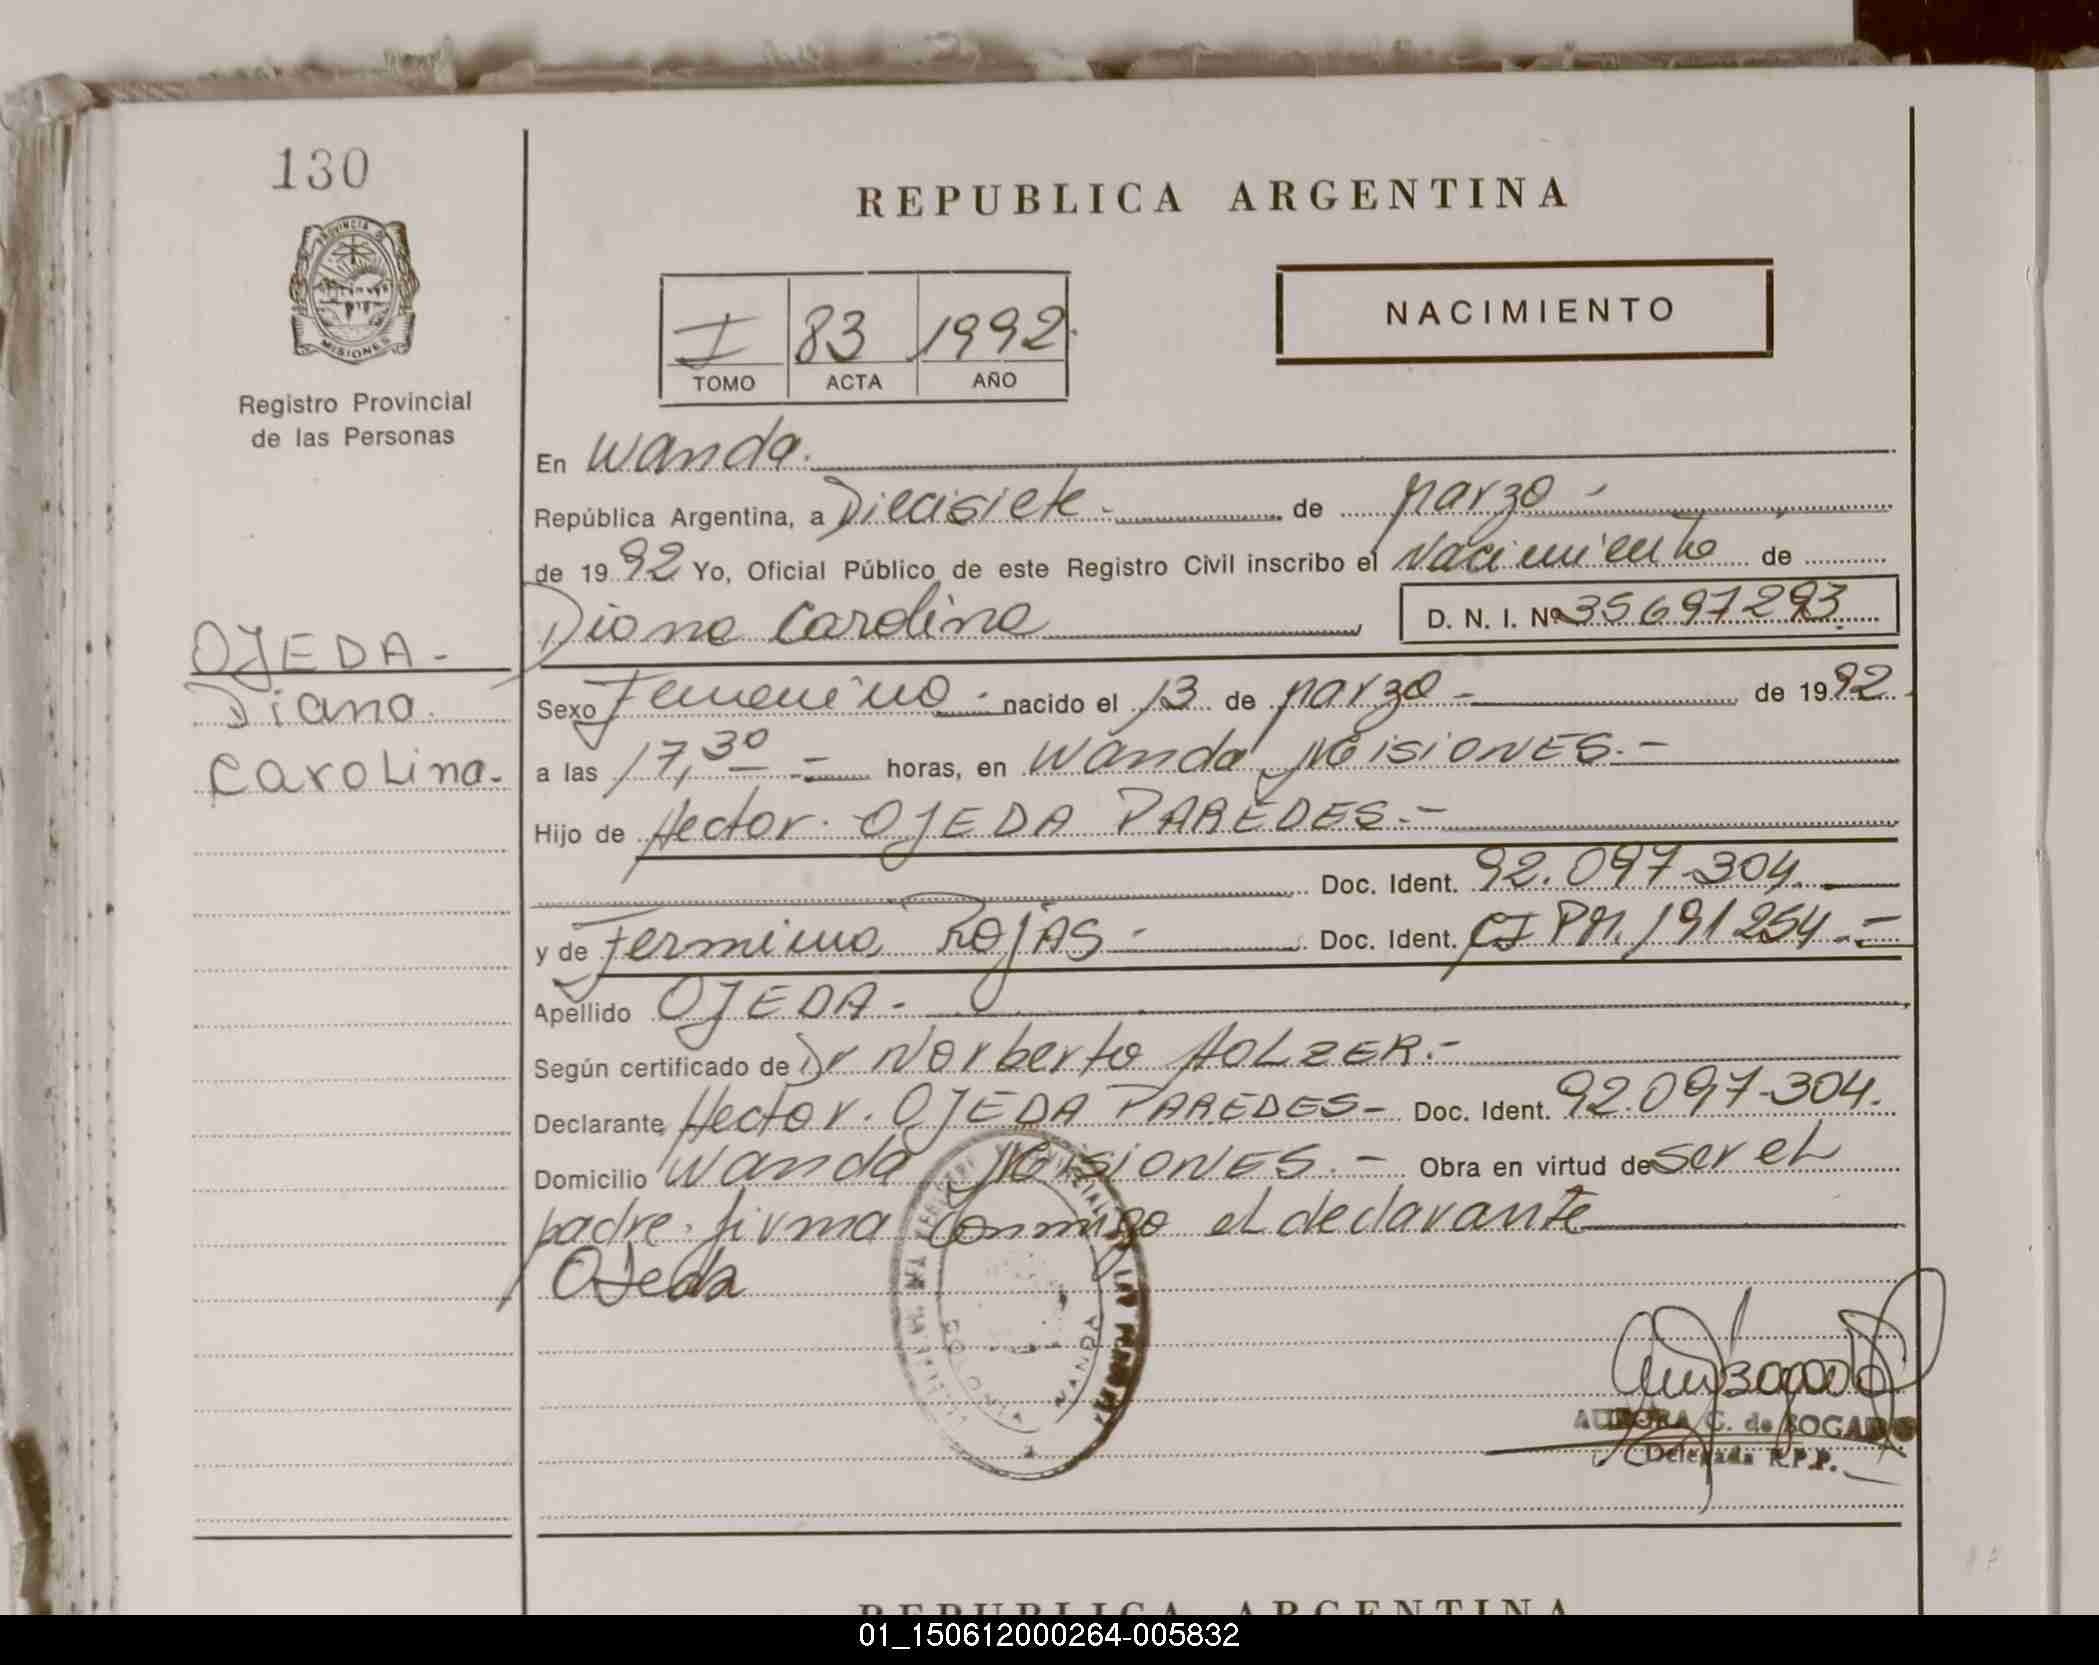 130
PROVINCIA DE
MISIONES
Registro Provincial
de las Personas
REPUBLICA ARGENTINA
I 83 1992
TOMO ACTA AÑO
NACIMIENTO
En Wanda.
República Argentina, a Diecisiete - de Marzo -
de 1992 Yo, Oficial Público de este Registro Civil inscribo el Nacimiento de
Diana Carolina D. N. I. Nº 35697293
OJEDA -
Diana
Carolina.
Sexo Femenino - nacido el 13 de Marzo - de 1992
a las 17,30 - horas, en Wanda Misiones. -
Hijo de Hector. OJEDA PAREDES. -
Doc. Ident. 92.097.304.
y de Fermina Rojas - Doc. Ident. CI PM. 191254. -
Apellido OJEDA -
Según certificado de Dr Norberto HOLZER. -
Declarante Hector. OJEDA PAREDES - Doc. Ident. 92.097.304.
Domicilio Wanda Misiones. - Obra en virtud de ser el
padre. firma conmigo el declarante
Ojeda
WANDA
AURORA C. de SOGADO
Delegada R.P.P.
REPUBLICA ARGENTINA
01_150612000264-005832